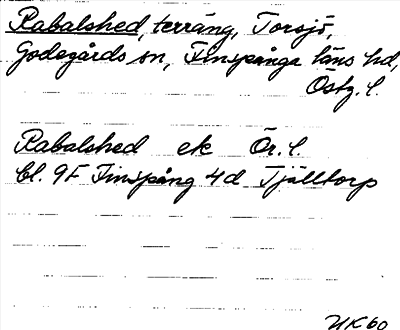 Rabalshed, terräng, Torsjö,
Godegårds sn, Finspånga läns hd,
Östg. l.
Rabalshed ek Ör. l.
bl. 9F Finspång 4d Tjälltorp
HK 60